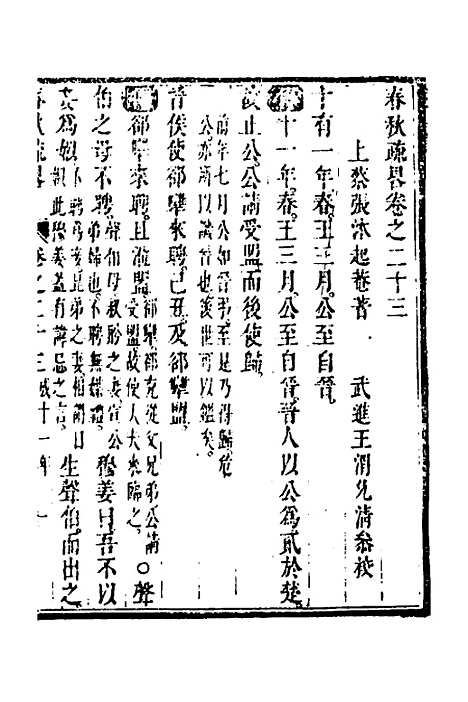 春秋疏畧卷之二十三
上蔡張沐起菴著　武進王渭允清叅校
十有一年春王三月公至自晉
傳十一年春王三月公至自晉晉人以公爲貳於楚
故止公公請受盟而後使歸
前年七月公如晉弔至是乃得歸危
公亦所以謹也後世可以鑑矣
晉侯使郤犨來聘己丑及郤犨盟
傳郤犨來聘且涖盟郤犨郤克從父兄弟公請
受盟故使人大來臨之○聲
伯之母不聘聲伯母叔肹之妻宣公
弟婦也不聘無媒禮穆姜曰吾不以
妾爲姒不聘故妾兄弟之妻相謂曰
姒此穆姜蓋有諱忌之言生聲伯而出之
春秋疏畧　卷之二十三　成十一年　一